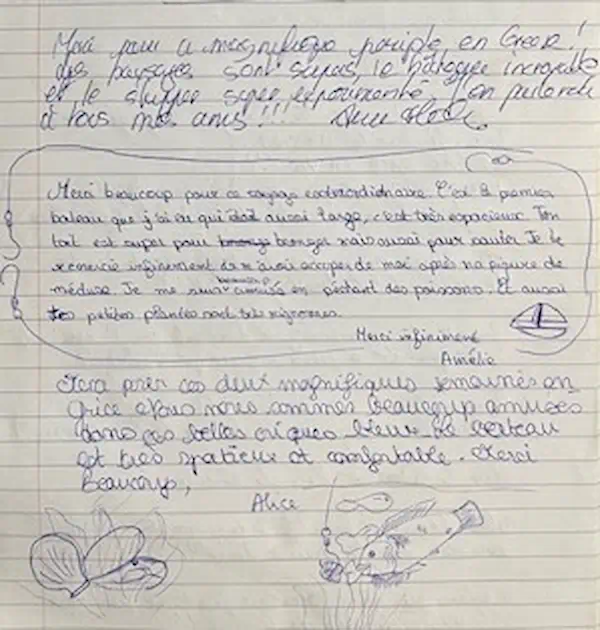 Merci pour ce magnifique périple en Grèce!
Les paysages sont supers, le bateau incroyable
et le skipper super expérimenté. J'en parlerai
à tous mes amis!!!
Merci beaucoup pour ce voyage extraordinaire. C'est le premier
bateau que j'ai eu qui était aussi large, c'est très espacieux. Ton
toit est super pour bronzer mais aussi pour sauter. Je te
remercie infiniment de m'avoir occuper de moi après ma piqure de
méduse. Je me suis beaucoup amusée en pêchant des poissons. Et aussi
tes petites plantes sont très mignonnes.
Merci infiniment
Amélie
Merci pour ces deux magnifiques semaines en
Grèce. Nous nous sommes beaucoup amusées
dans ces belles criques bleues. Le bateau
est très spatieux et comfortable. Merci
beaucoup,
Alice